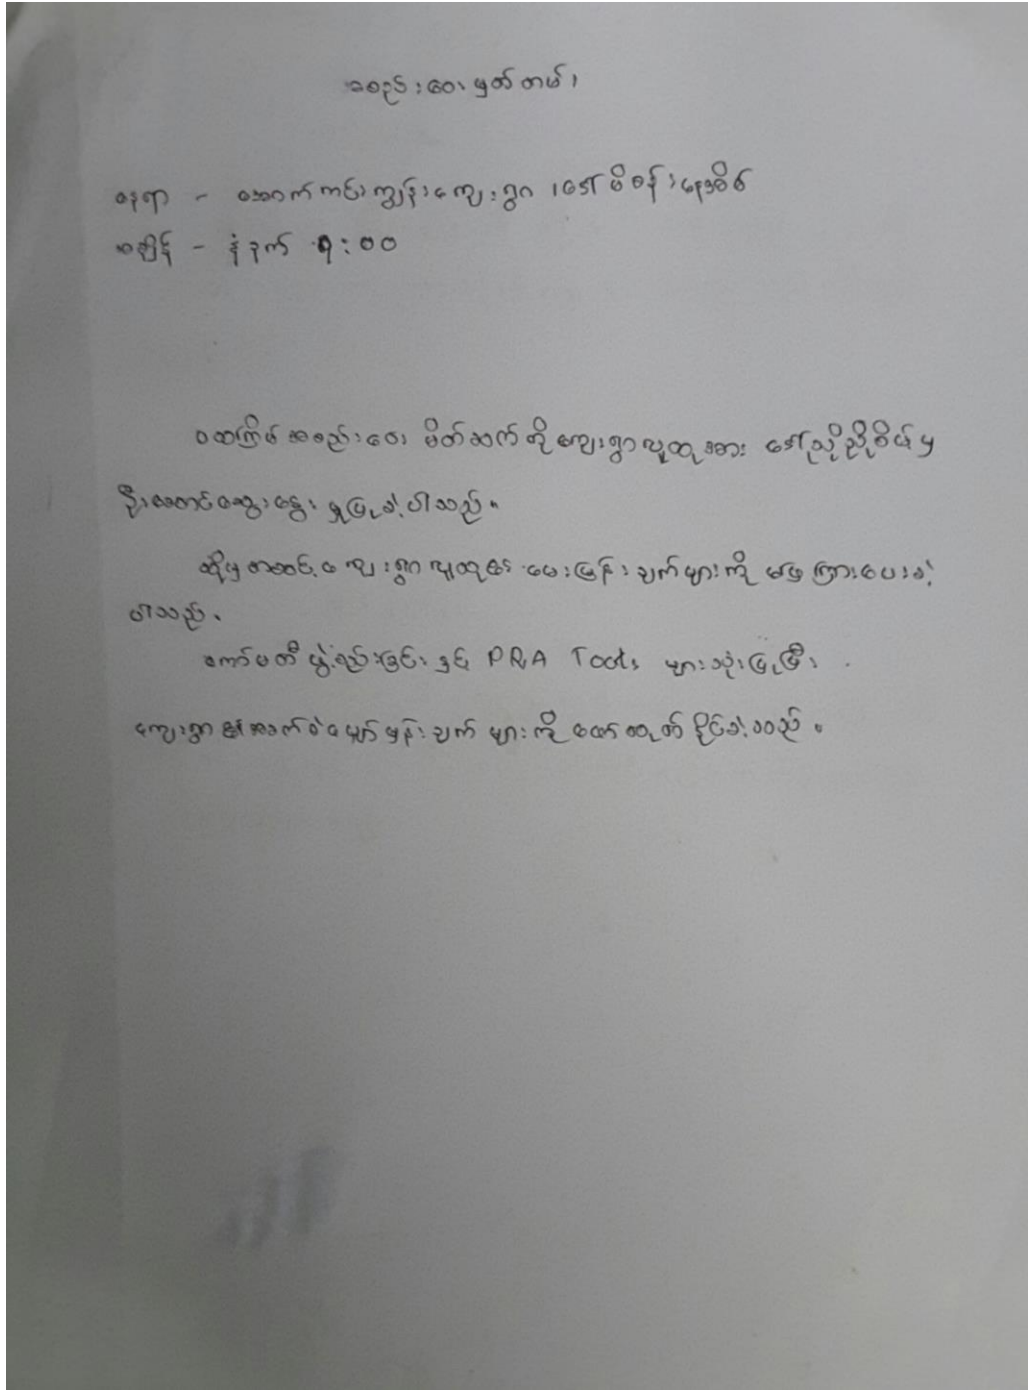 အစည်းဝေးမှတ်တမ်း
နေရာ - အောက်ကင်းကျွန်းကျေးရွာ ၊ ဒေါ်မိစန်းနေအိမ်
အချိန် - နံနက် ၅:၀၀
ပထမကြိမ်အစည်းဝေး မိတ်ဆက်ကိုကျေးရွာလူထုအား ဒေါ်သို့သို့စိမ်မှ
ဦးဆောင်ဆွေးနွေး ရှုပြခဲ့ပါသည်။
ထို့မှတဆင့် ကျေးရွာလူထု၏ မေးမြန်းချက်များကို ဖြေကြားပေးခဲ့
ပါသည်။
ကော်မတီဖွဲ့စည်းခြင်း နှင့် PRA Tools များသုံးပြုပြီး
ကျေးရွာ၏အခက်ခဲမျှော်မှန်းချက် များကို ဖော်ထုတ်နိုင်ခဲ့သည်။